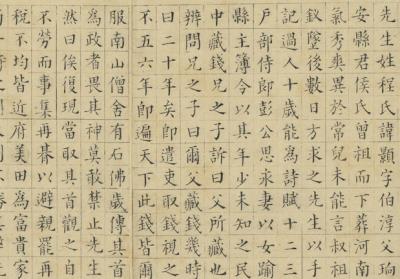 先生姓程氏諱顥字伯淳父珦
安縣君侯氏曾祖而下葬河南
氣秀爽異於常兒未能言叔祖
釵墜後數日方求之先生以手
記過人十歲能爲詩賦十二
戶部侍郎彭公思永妻以女踰
縣主簿令以其年少未知之民
中藏錢兄之子訴曰父所藏也
辨問兄之子曰爾父藏錢幾時
曰二十年矣即遣吏取錢視之
不五六年即遍天下此錢皆爾
服南山僧舍有石佛歲傳其首
爲政者畏其神莫敢禁止先生
然曰俟復現當取其首觀之自
不勞而事集再朞以避親罷再
稅不均皆近府美田爲富貴家